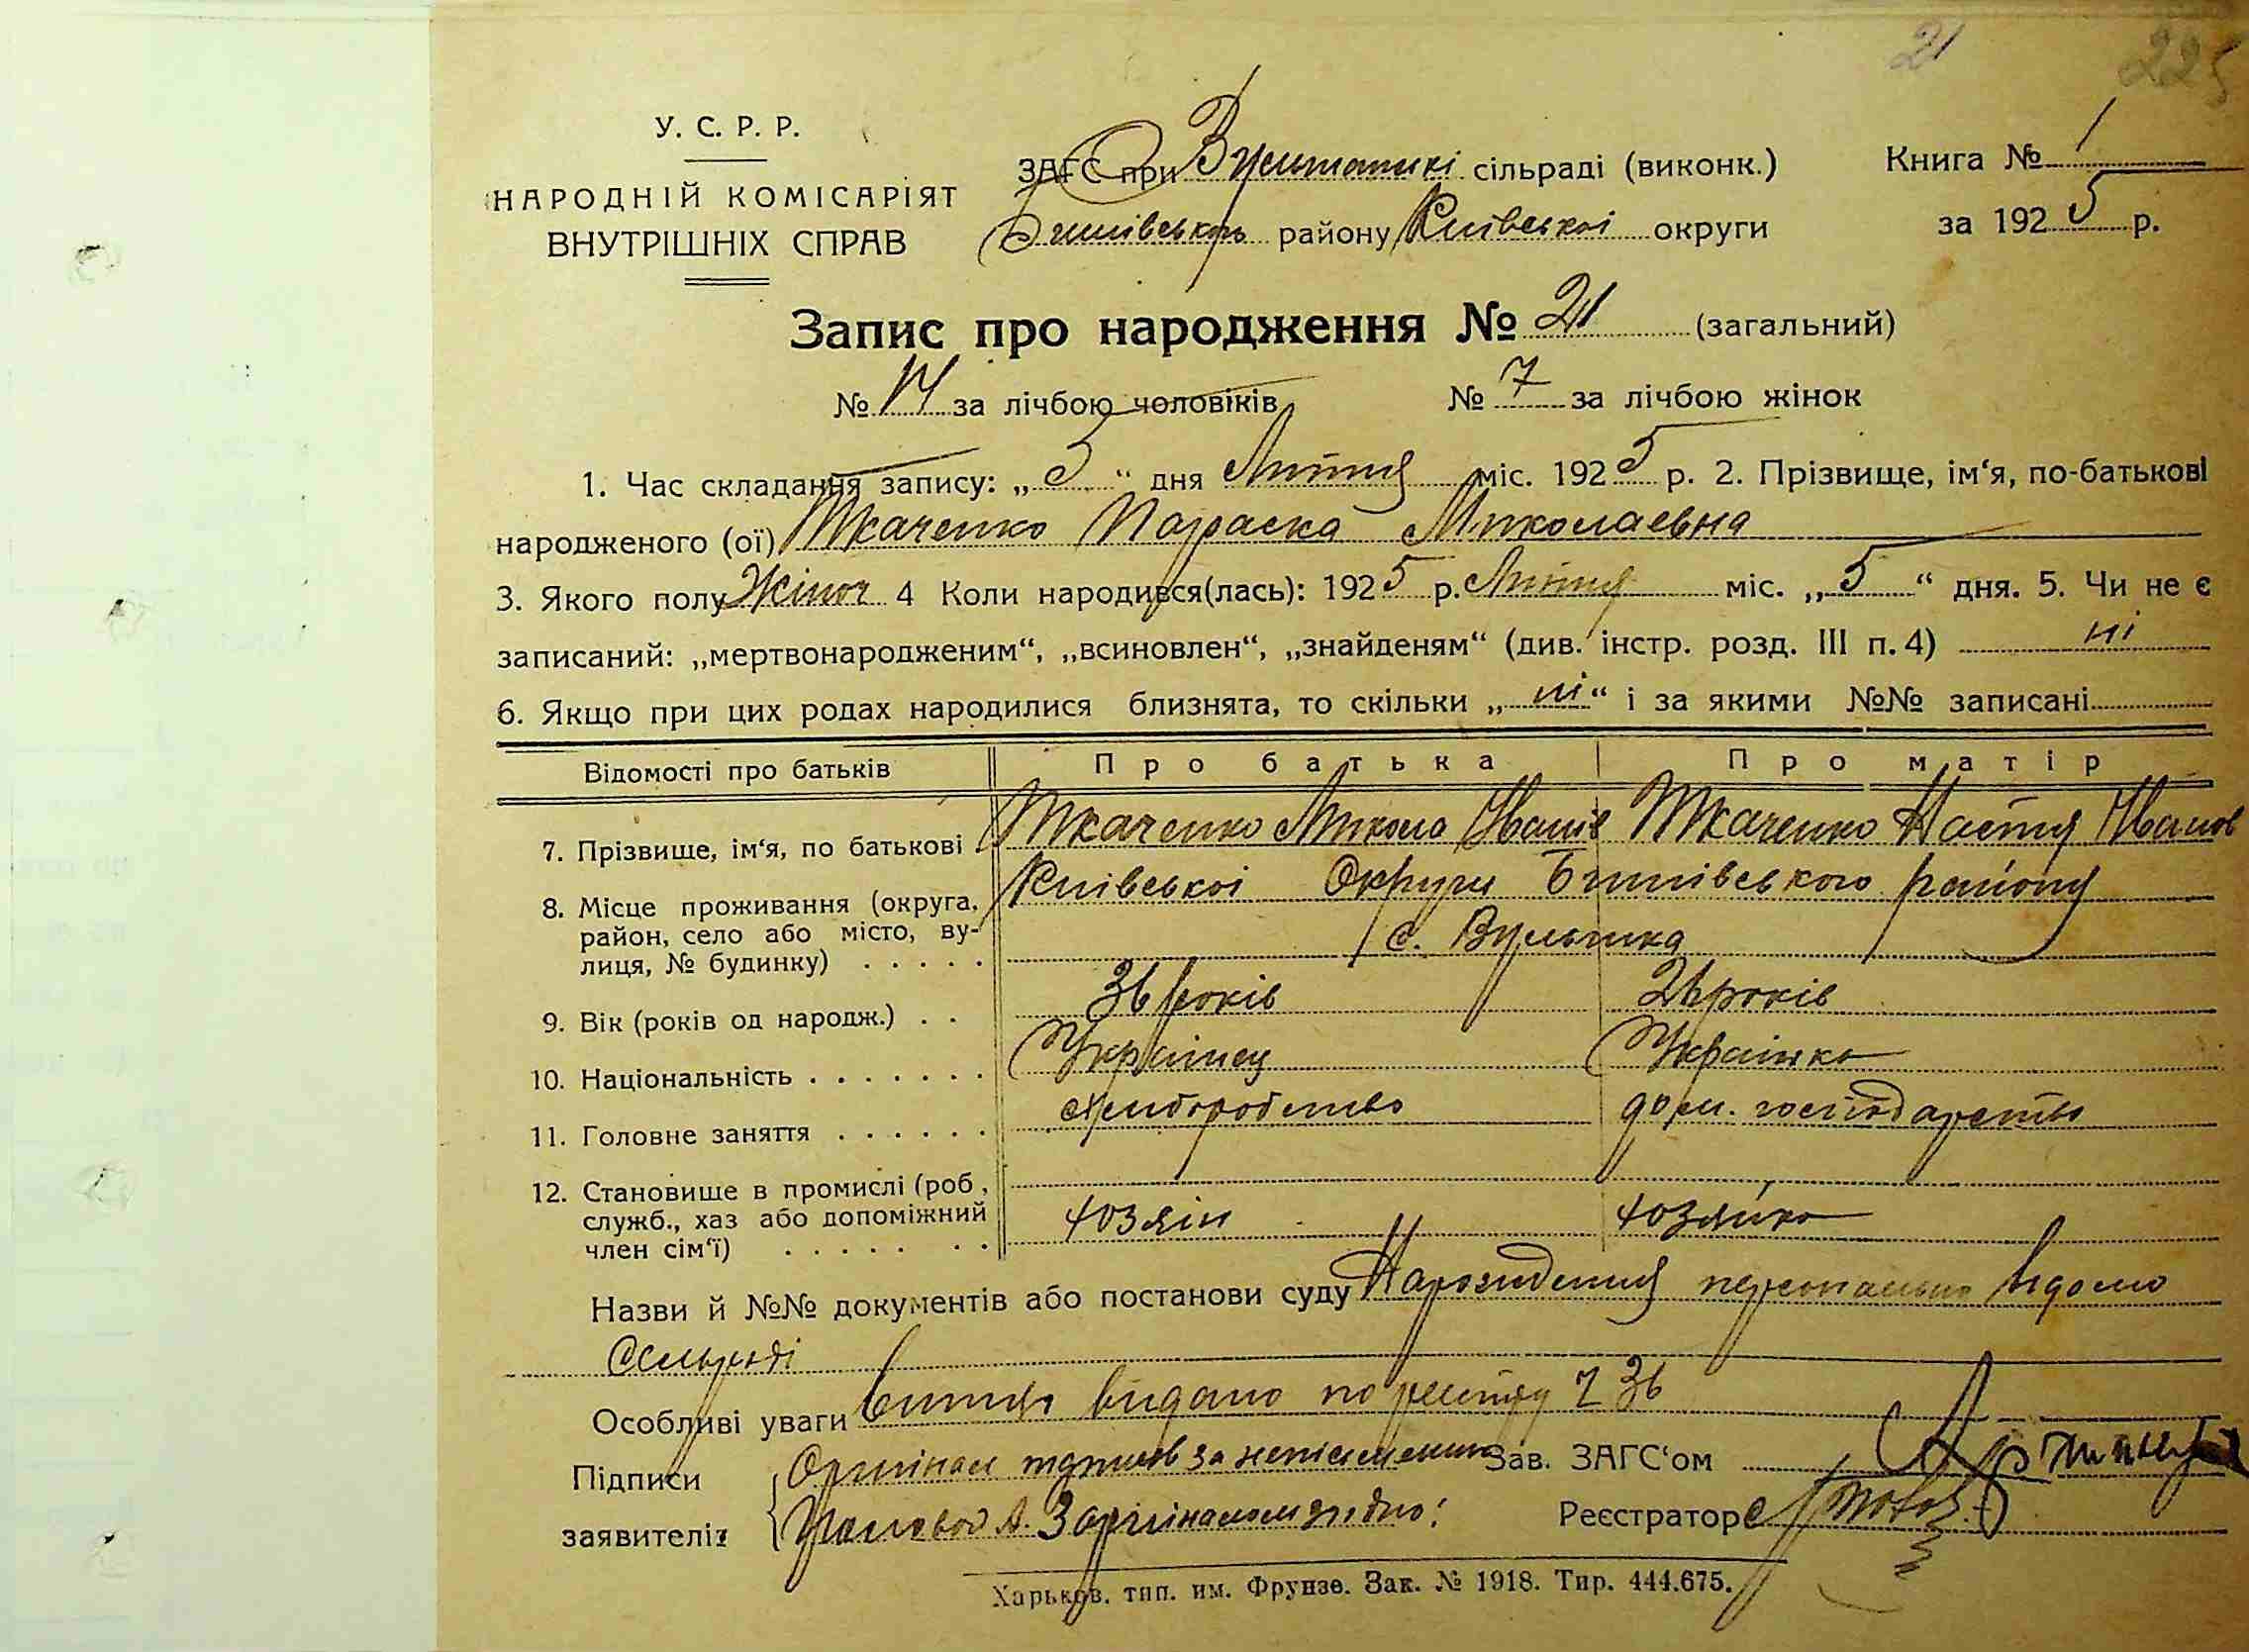 21 225
У. С. Р. Р.
НАРОДНІЙ КОМІСАРІЯТ
ВНУТРІШНІХ СПРАВ
ЗАГС при сільраді (виконк.) Книга № 1
району Київської округи за 1925 р.
Запис про народження № 21 (загальний)
№ 14 за лічбою чоловіків № 7 за лічбою жінок
1. Час складання запису: „5“ дня Липня міс. 1925 р. 2. Прізвище, ім‘я, по-батькові
народженого (ої) Ткаченко Параска Миколаевна
3. Якого полу Жіноч 4 Коли народився(лась): 1925 р. Липня міс. „5“ дня. 5. Чи не є
записаний: „мертвонародженим“, „всиновлен“, „знайденям“ (див. інстр. розд. III п. 4) ні
6. Якщо при цих родах народилися близнята, то скільки „ні“ і за якими №№ записані
Відомості про батьків Про батька Про матір
7. Прізвище, ім‘я, по батькові Ткаченко Микола Іванів Ткаченко Настя Іванов
8. Місце проживання (округа, Київської Округи Бишівського району
район, село або місто, ву-
лиця, № будинку) с.
9. Вік (років од народж.) 36 років 26 років
10. Національність Українец Українка
11. Головне заняття хліборобство дом. господарство
12. Становище в промислі (роб,
служб., хаз або допоміжний хозяін хозяйка
член сім‘ї)
Назви й №№ документів або постанови суду Нарождення персонально відомо
Сільраді
Особливі уваги Витяг видано по реєстру 36
Підписи Оригінал підписав за неписьменного Зав. ЗАГС‘ом
заявителів З оригіналом згідно! Реєстратор
Харьков. тип. им. Фрунзе. Зак. № 1918. Тир. 444.675.